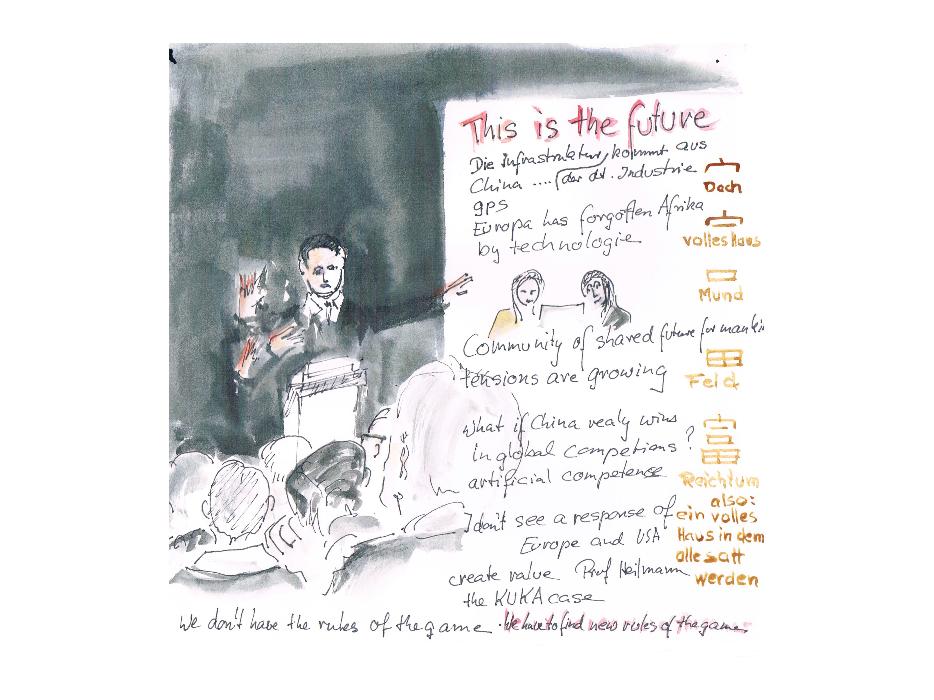 This is the future
Die Infrastruktur, kommt aus
China .... (der dt. Industrie
gps
Europa has forgotten Afrika
by technologie
Community of shared future for mankin
tensions are growing
what if China realy wins
in global competions ?
artificial competence
I don't see a response of
Europe and USA
create value Prof Heilmann
the KUKA case
we don't have the rules of the game. We have to find new rules of the game.
Dach
volles Haus
Mund
Feld
富
Reichtum
also:
ein volles
Haus in dem
alle satt
werden